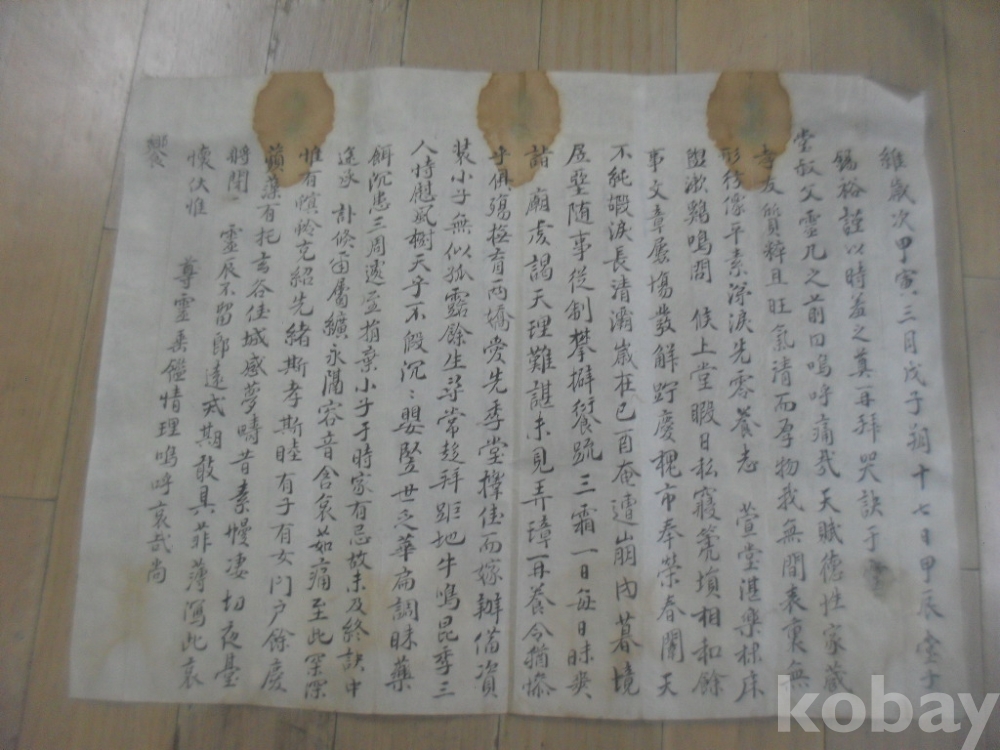 維歲次甲寅三月戊子朔十七日甲辰堂子
錫裕謹以時羞之奠再拜哭訣于
堂叔父靈几之前曰嗚呼痛哉天賦德性家藏
孝友質粹且旺氣清而厚物我無間表裏無
形彷像平素深淚先零養志 萱堂湛樂棣床
盥漱鷄鳴問候上堂暇日私寢篪塤相和餘
事文章屢塲發解野慶槐市奉榮春闈天
不純嘏淚長清灞歲在己酉奄遭崩內暮境
居堊隨事從制攀擗衍䟽三霜一日每日昧爽
詣 廟虔謁天理難諶未見弄璋再養令猶
乎俱殤極育兩嬌愛先季堂擇佳而嫁辦備資
裝小子無似孤露餘生尋常趍拜距地牛鳴昆季三
人恃慰風樹天乎不假沉：嬰竪世之華扁調昧藥
餌沉恙三周遽至捐棄小子于時家有忌故未及終訣中
途承 訃倏而屬纊永隔容音含哀茹痛至此深深
惟有嗣克紹先緖斯孝斯睦有子有女門戶餘慶
蘋藻有托玄谷佳城感夢疇昔素幔凄切夜臺
將閉 靈辰不留卽遠戒期敢具菲薄瀉此哀
懷伏惟 尊靈垂鑑情理嗚呼哀哉尙
饗
kobay